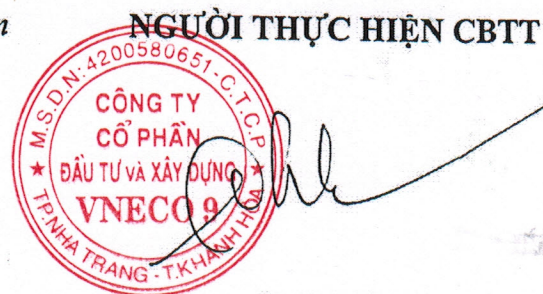 n NGƯỜI THỰC HIỆN CBTT
M.S.D.N:4200580651-C.T.C.P
CÔNG TY
CỔ PHẦN
ĐẦU TƯ VÀ XÂY DỰNG
VNECO 9
TP.NHA TRANG - T.KHÁNH HÒA